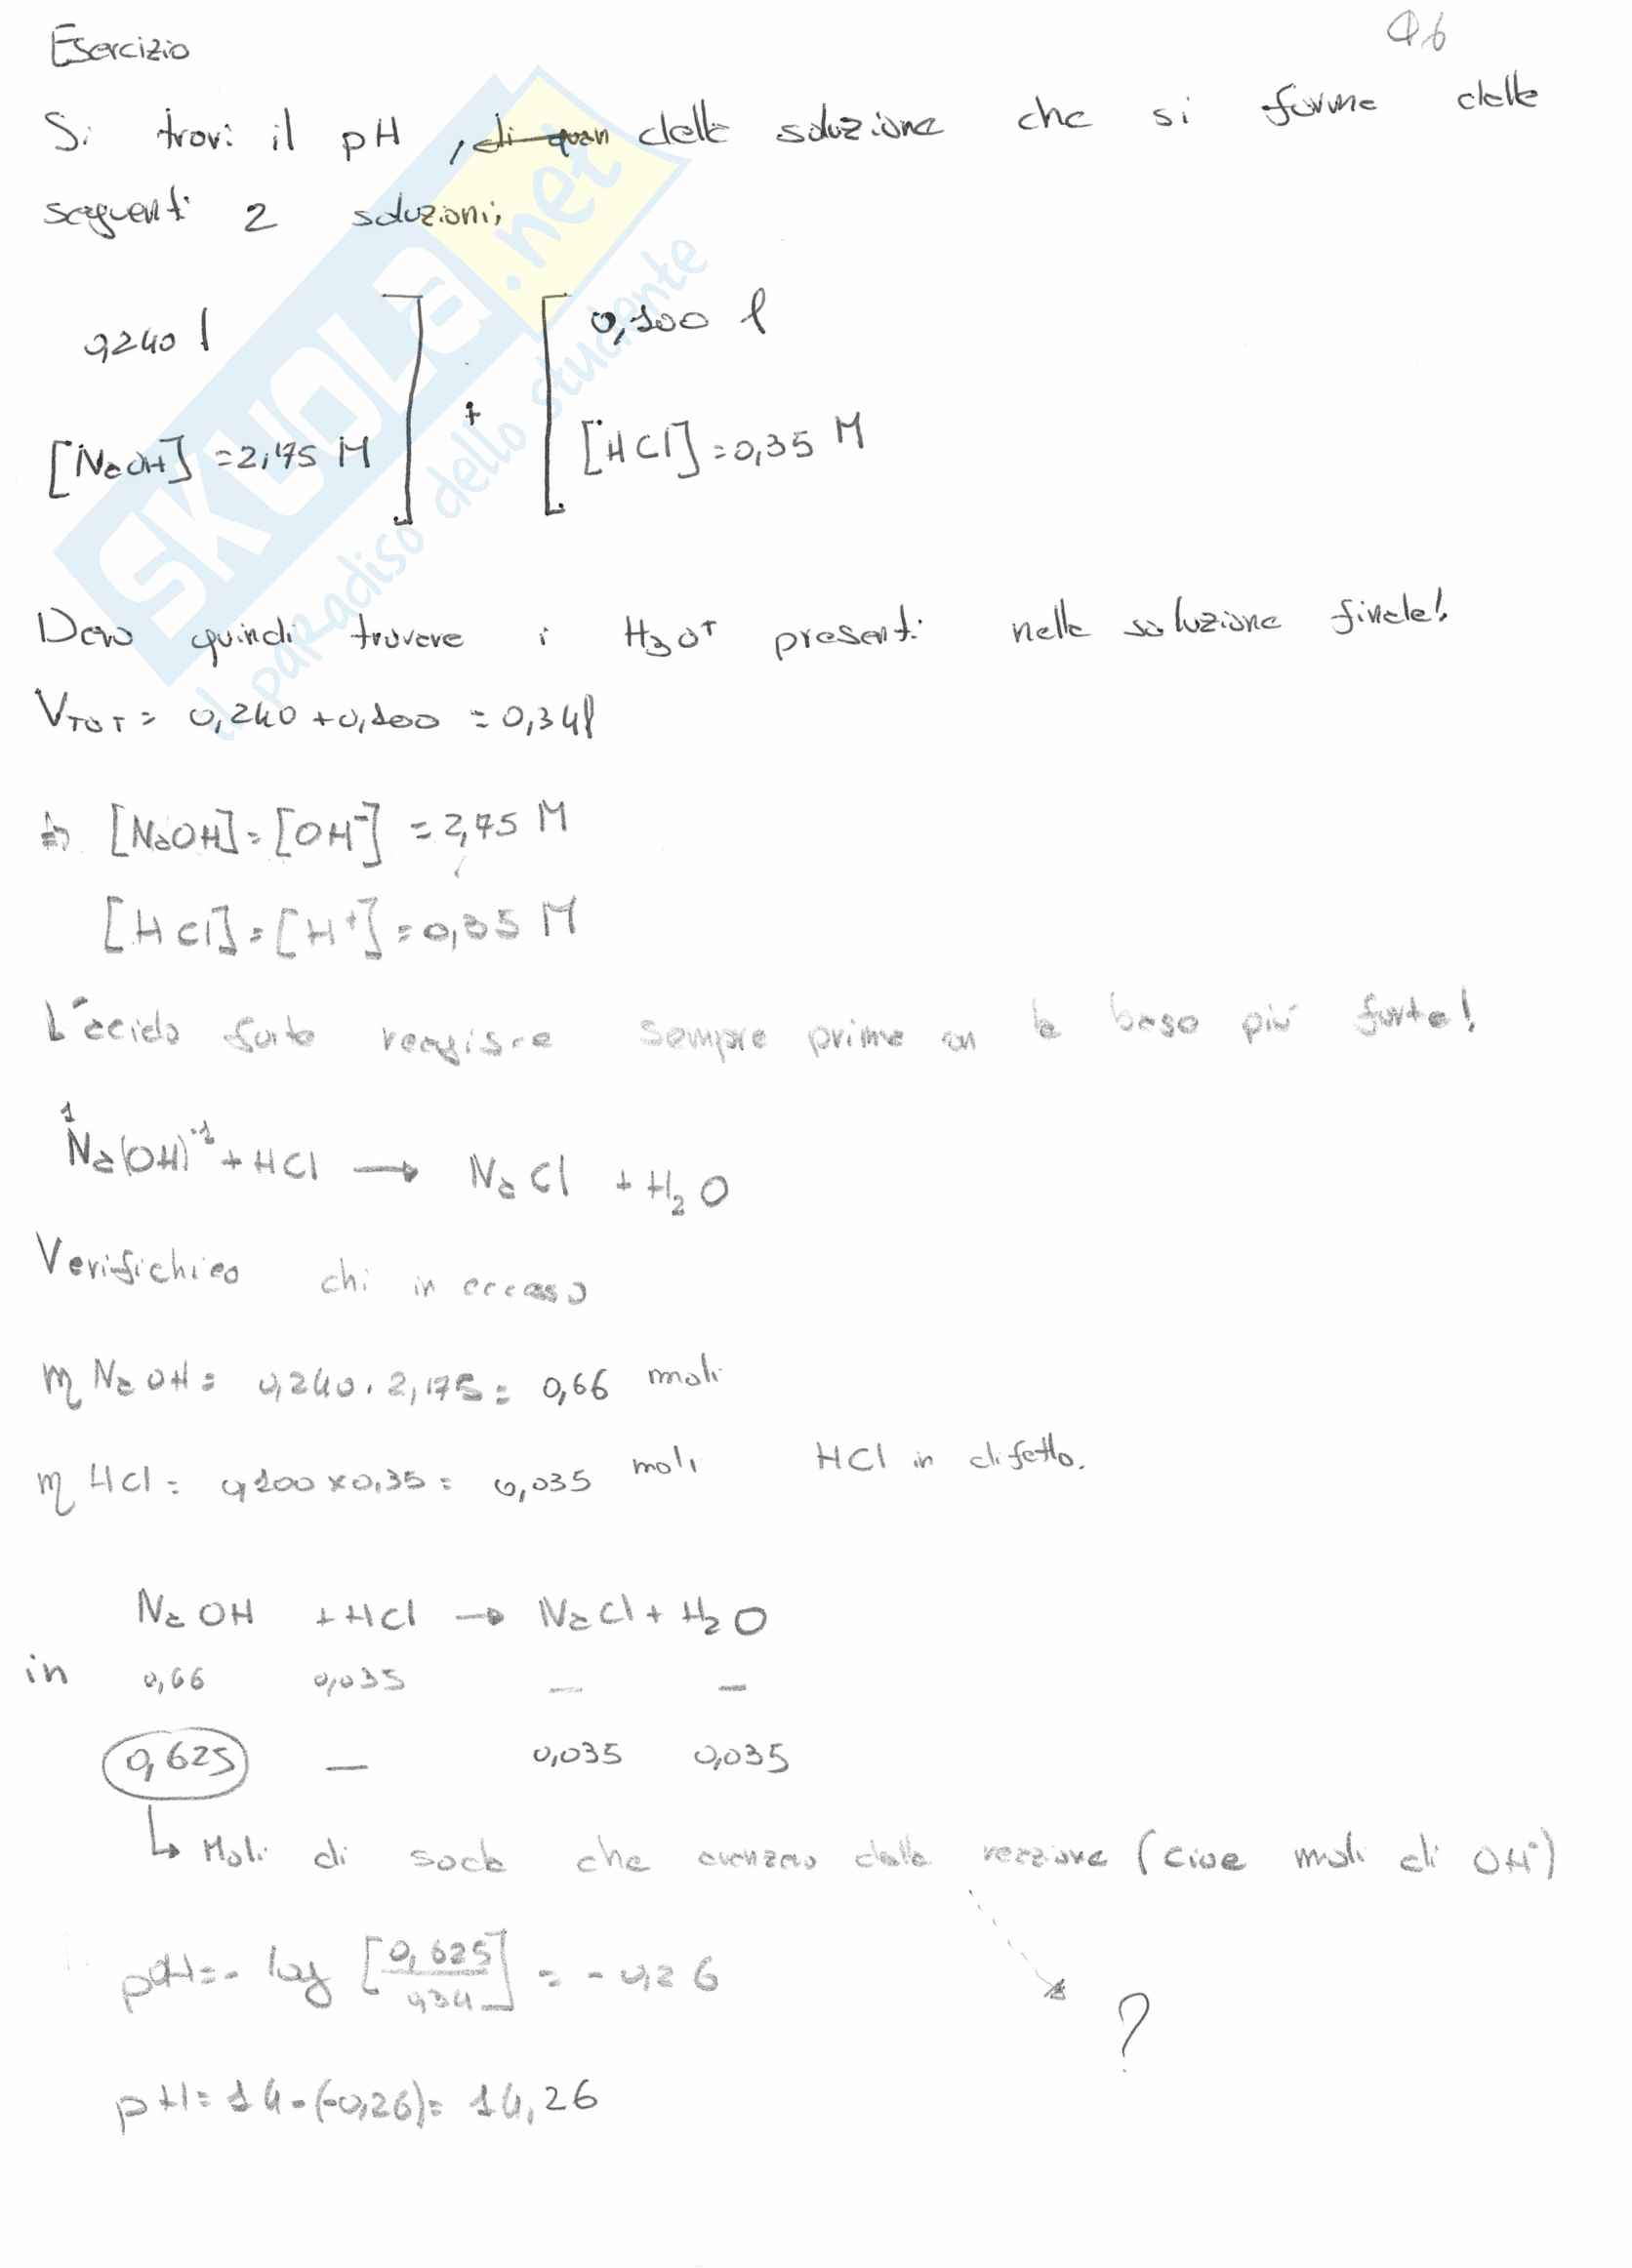 Esercizio
96
Si trovi il pH, di quan della soluzione che si forma dalle
seguenti 2 soluzioni;
0,240 l
0,100 l
+
[NaOH] = 2,75 M
[HCl] = 0,35 M
Devo quindi trovare i H3O+ presenti nella soluzione finale!
VTOT = 0,240 + 0,100 = 0,34 l
=> [NaOH] = [OH-] = 2,75 M
[HCl] = [H+] = 0,35 M
L'acido forte reagisce sempre prima con la base più forte!
1 -1
Na(OH) + HCl → NaCl + H2O
Verifichiao chi in eccesso
n NaOH = 0,240 . 2,75 = 0,66 moli
n HCl = 0,100 x 0,35 = 0,035 moli HCl in difetto.
NaOH + HCl → NaCl + H2O
in 0,66 0,035 — —
0,625 — 0,035 0,035
↳ Moli di soda che avanzano dalla reazione (cioe moli di OH-)
pOH = - log [0,625/0,34] = - 0,26
?
pH = 14 - (-0,26) = 14,26
SKUOLA.net
il paradiso dello studente